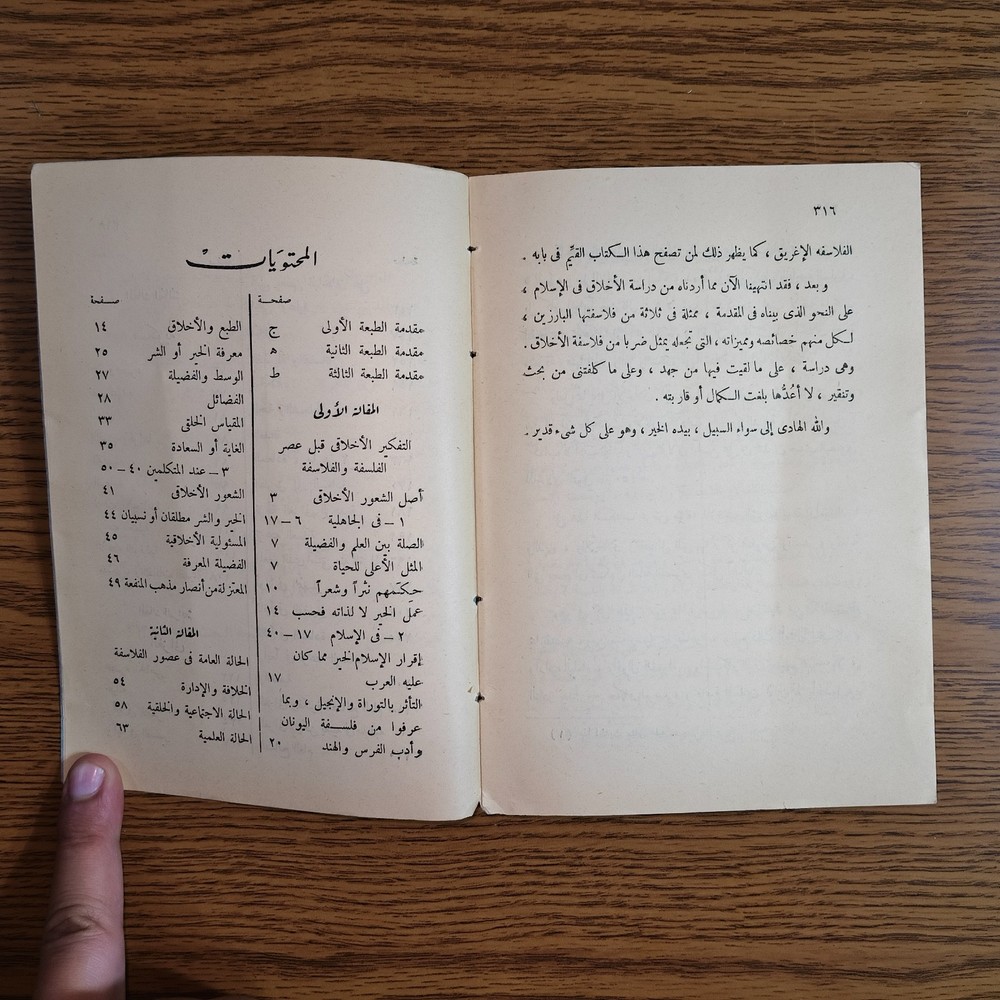 ٣١٦
الفلاسفه الإغريق ، كما يظهر ذلك لمن تصفح هذا الكتاب القيِّم فى بابه .
و بعد ، فقد انتهينا الآن مما أردناه من دراسة الأخلاق فى الإسلام ،
على النحو الذى بيناه فى المقدمة ، ممثلة فى ثلاثة من فلاسفتها البارزين ،
لكل منهم خصائصه ومميزاته ، التى تجعله يمثل ضربا من فلاسفة الأخلاق .
وهى دراسة ، على ما لقيت فيها من جهد ، وعلى ما كلفتنى من بحث
وتنقير ، لا أعُدُّها بلغت الكمال أو قاربته .
والله الهادى إلى سواء السبيل ، بيده الخير ، وهو على كل شىء قدير .
المحتويات
صفحة
مقدمة الطبعة الأولى ج
مقدمة الطبعة الثانية ه
مقدمة الطبعة الثالثة ط
المقالة الأولى
التفكير الأخلاقى قبل عصر
الفلسفة والفلاسفة
أصل الشعور الأخلاقى ٣
١ – فى الجاهلية ٦ – ١٧
الصلة بين العلم والفضيلة ٧
المثل الأعلى للحياة ٧
حكمهم نثراً وشعراً ١٠
عمل الخير لا لذاته فحسب ١٤
٢ – فى الإسلام ١٧ – ٤٠
إقرار الإسلام الخير مما كان
عليه العرب ١٧
التأثر بالتوراة والإنجيل ، وبما
عرفوا من فلسفة اليونان
وأدب الفرس والهند ٢٠
صفحة
الطبع والأخلاق ١٤
معرفة الخير أو الشر ٢٥
الوسط والفضيلة ٢٧
الفضائل ٢٨
المقياس الخلقى ٣٣
الغاية أو السعادة ٣٥
٣ – عند المتكلمين ٤٠ – ٥٠
الشعور الأخلاقى ٤١
الخير والشر مطلقان أو نسبيان ٤٤
المسئولية الأخلاقية ٤٥
الفضيلة المعرفة ٤٦
المعتزلة من أنصار مذهب المنفعة ٤٩
المقالة الثانية
الحالة العامة فى عصور الفلاسفة
الخلافة والإدارة ٥٤
الحالة الاجتماعية والخلقية ٥٨
الحالة العلمية ٦٣